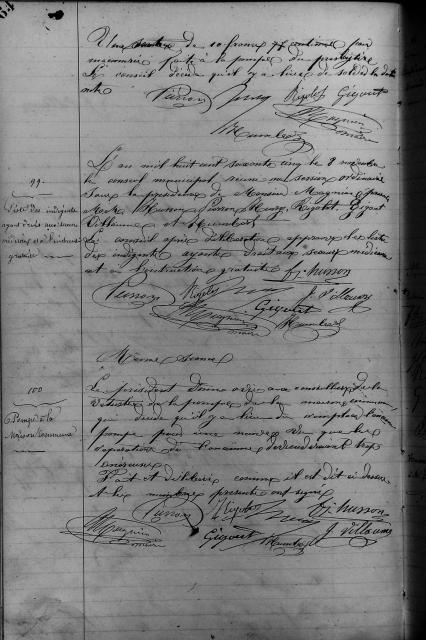 Une de 10 francs 77 centimes pour
faite à la pompe du presbytère
Le conseil décide qu'il y a lieu de solder la dite
note
Pierson Rigolot Gigout
Magnier
maire
Humbert
99
Liste des indigents
ayant droit aux secours
médicaux et à l'instruction
gratuite
L'an mil huit cent soixante cinq le 8 novembre
le conseil municipal réuni en session ordinaire
sous la présidence de Monsieur Magnier
Husson, Pierson, Rigolot, Gigout
Villaume et Humbert
Le conseil après délibération approuve la liste
des indigents ayant droit aux secours médicaux
et à l'instruction gratuite
Husson
Pierson Rigolot J. Villaume
Magnier Gigout
maire Humbert
Même séance
100
Pompe à la
Maison Commune
Le président donne avis aux conseillers de la
de la pompe de la maison commune
qui décide qu'il y a lieu de remplacer l'ancienne
pompe par une neuve vu que les
réparations de l'ancienne deviendraient trop
onéreuses
Fait et délibéré comme il est dit ci dessus
et les membres présents ont signé
Pierson Rigolot Husson
Magnier Gigout Humbert J. Villaume
maire